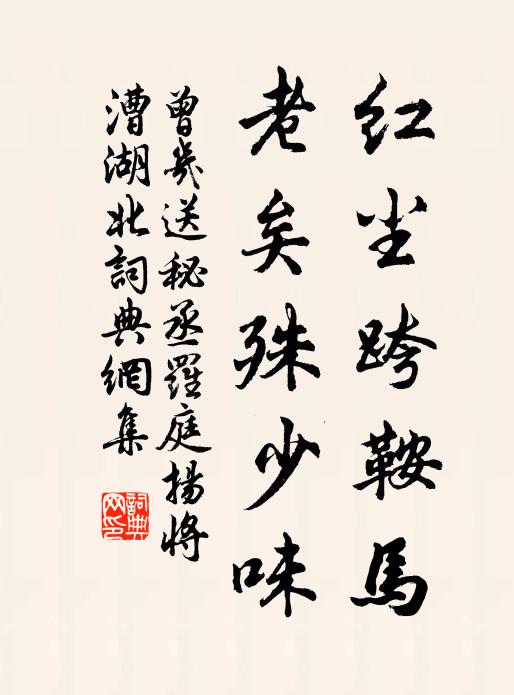 红尘跨鞍馬
老矣殊少味
曾幾送秘丞羅庭揚將
漕湖北詞典網集
詞典网印